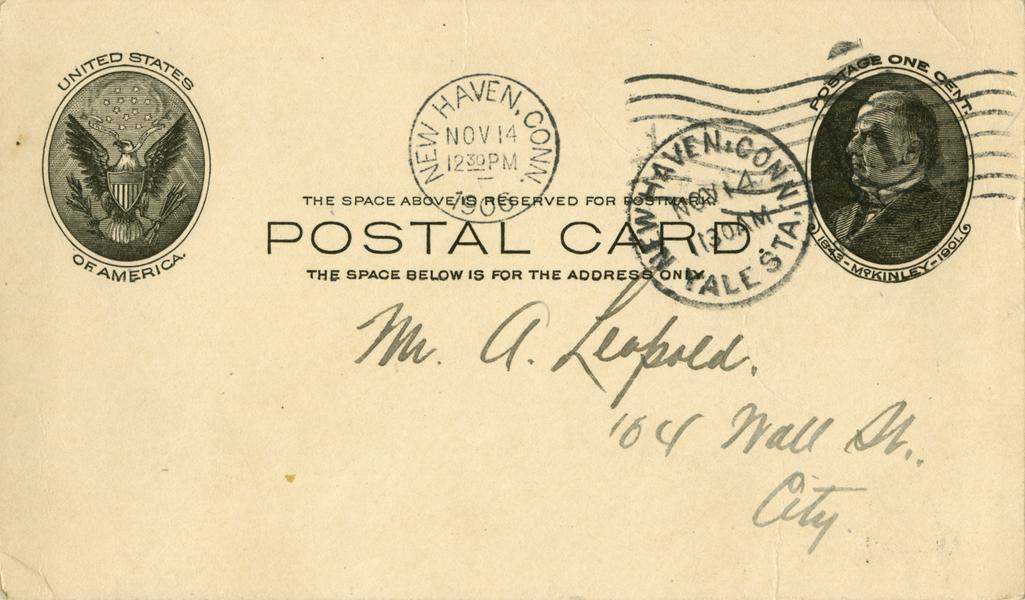 UNITED STATES
OF AMERICA.
NEW HAVEN, CONN.
NOV 14
12 30 PM
1906
POSTAGE ONE CENT.
1843-McKINLEY-1901.
THE SPACE ABOVE IS RESERVED FOR POSTMARK.
POSTAL CARD
THE SPACE BELOW IS FOR THE ADDRESS ONLY.
NEW HAVEN, CONN.
NOV 14
YALE STA.
Mr. A. Leopold.
104 Wall St.,
City.